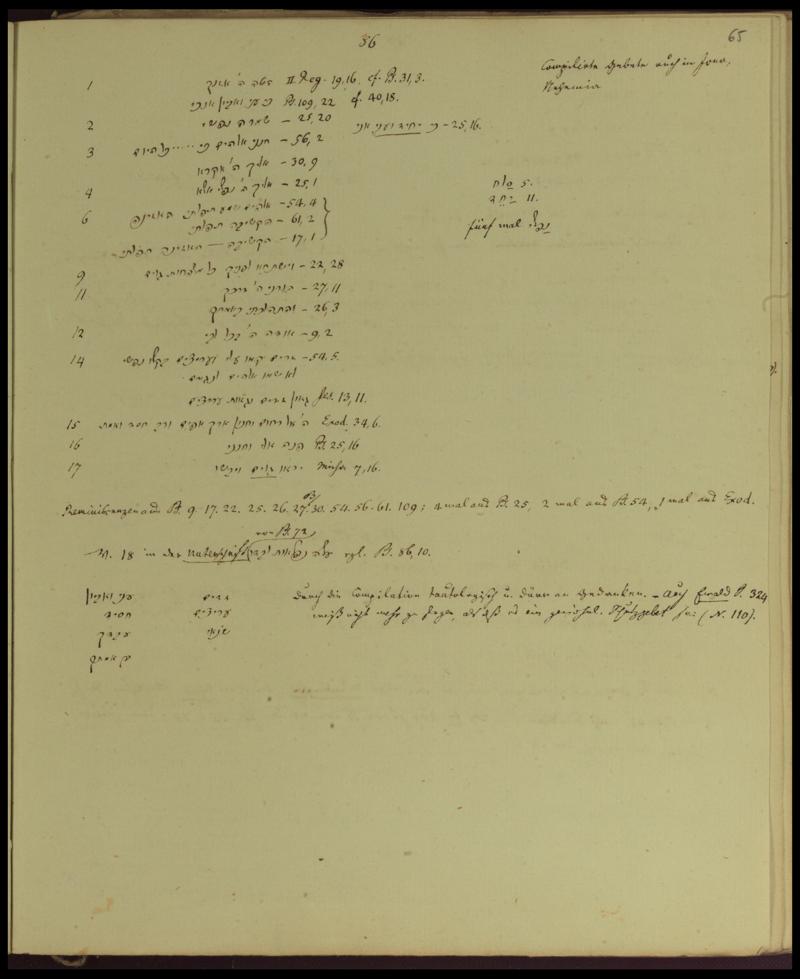 86
65
Compilirte Gebete auch in Jona,
Nehemia
1 הטה ה' אזנך II Reg. 19,16. cf. Ps. 31,3.
כי עני ואביון אנכי Ps. 109, 22 cf. 40,18.
2 שמרה נפשי — 25, 20
כי יחיד ועני אני — 25, 16.
3 חנני אלהים כי ...... כל היום — 56, 2
אליך ה' אקרא — 30, 9
4 אליך ה' נפשי אשא — 25, 1
6 אלהים שמע תפלתי האזינה — 54, 4
הקשיבה תפלתי — 61, 2
הקשיבה — האזינה תפלתי — 17, 1
סלח 5.
יחד 11.
fünf mal נפשי
9 וישתחוו לפניך כל משפחות גוים — 22, 28
11 הורני ה' דרכך — 27, 11
והתהלכתי באמתך — 26, 3
12 אודה ה' בכל לבי — 9, 2
14 זרים קמו עלי ועריצים בקשו נפשי — 54, 5.
לא שמו אלהים לנגדם
גאון זדים וגאות עריצים Jes. 13, 11.
15 ה' אל רחום וחנון ארך אפים ורב חסד ואמת Exod. 34, 6.
16 פנה אלי וחנני Ps. 25, 16
17 יראו גוים ויבשו Micha 7, 16.
Reminiscenzen aus Ps. 9. 17. 22. 25. 26. 27. 30. 54. 56. 61. 109; 4 mal aus Ps. 25, 2 mal aus Ps. 54, 1 mal aus Exod.
von Ps. 72
18 in der Unterschrift נפלאות vgl. Ps. 86, 10.
עני ואביון זדים
חסיד עריצים
עבדך שנאי
בן אמתך
durch die Compilation tautologisch u. dünn an Gedanken. — auch Ewald P. 324
weiß nicht mehr zu sagen, als daß es ein Schutzgebet sei (N. 110).